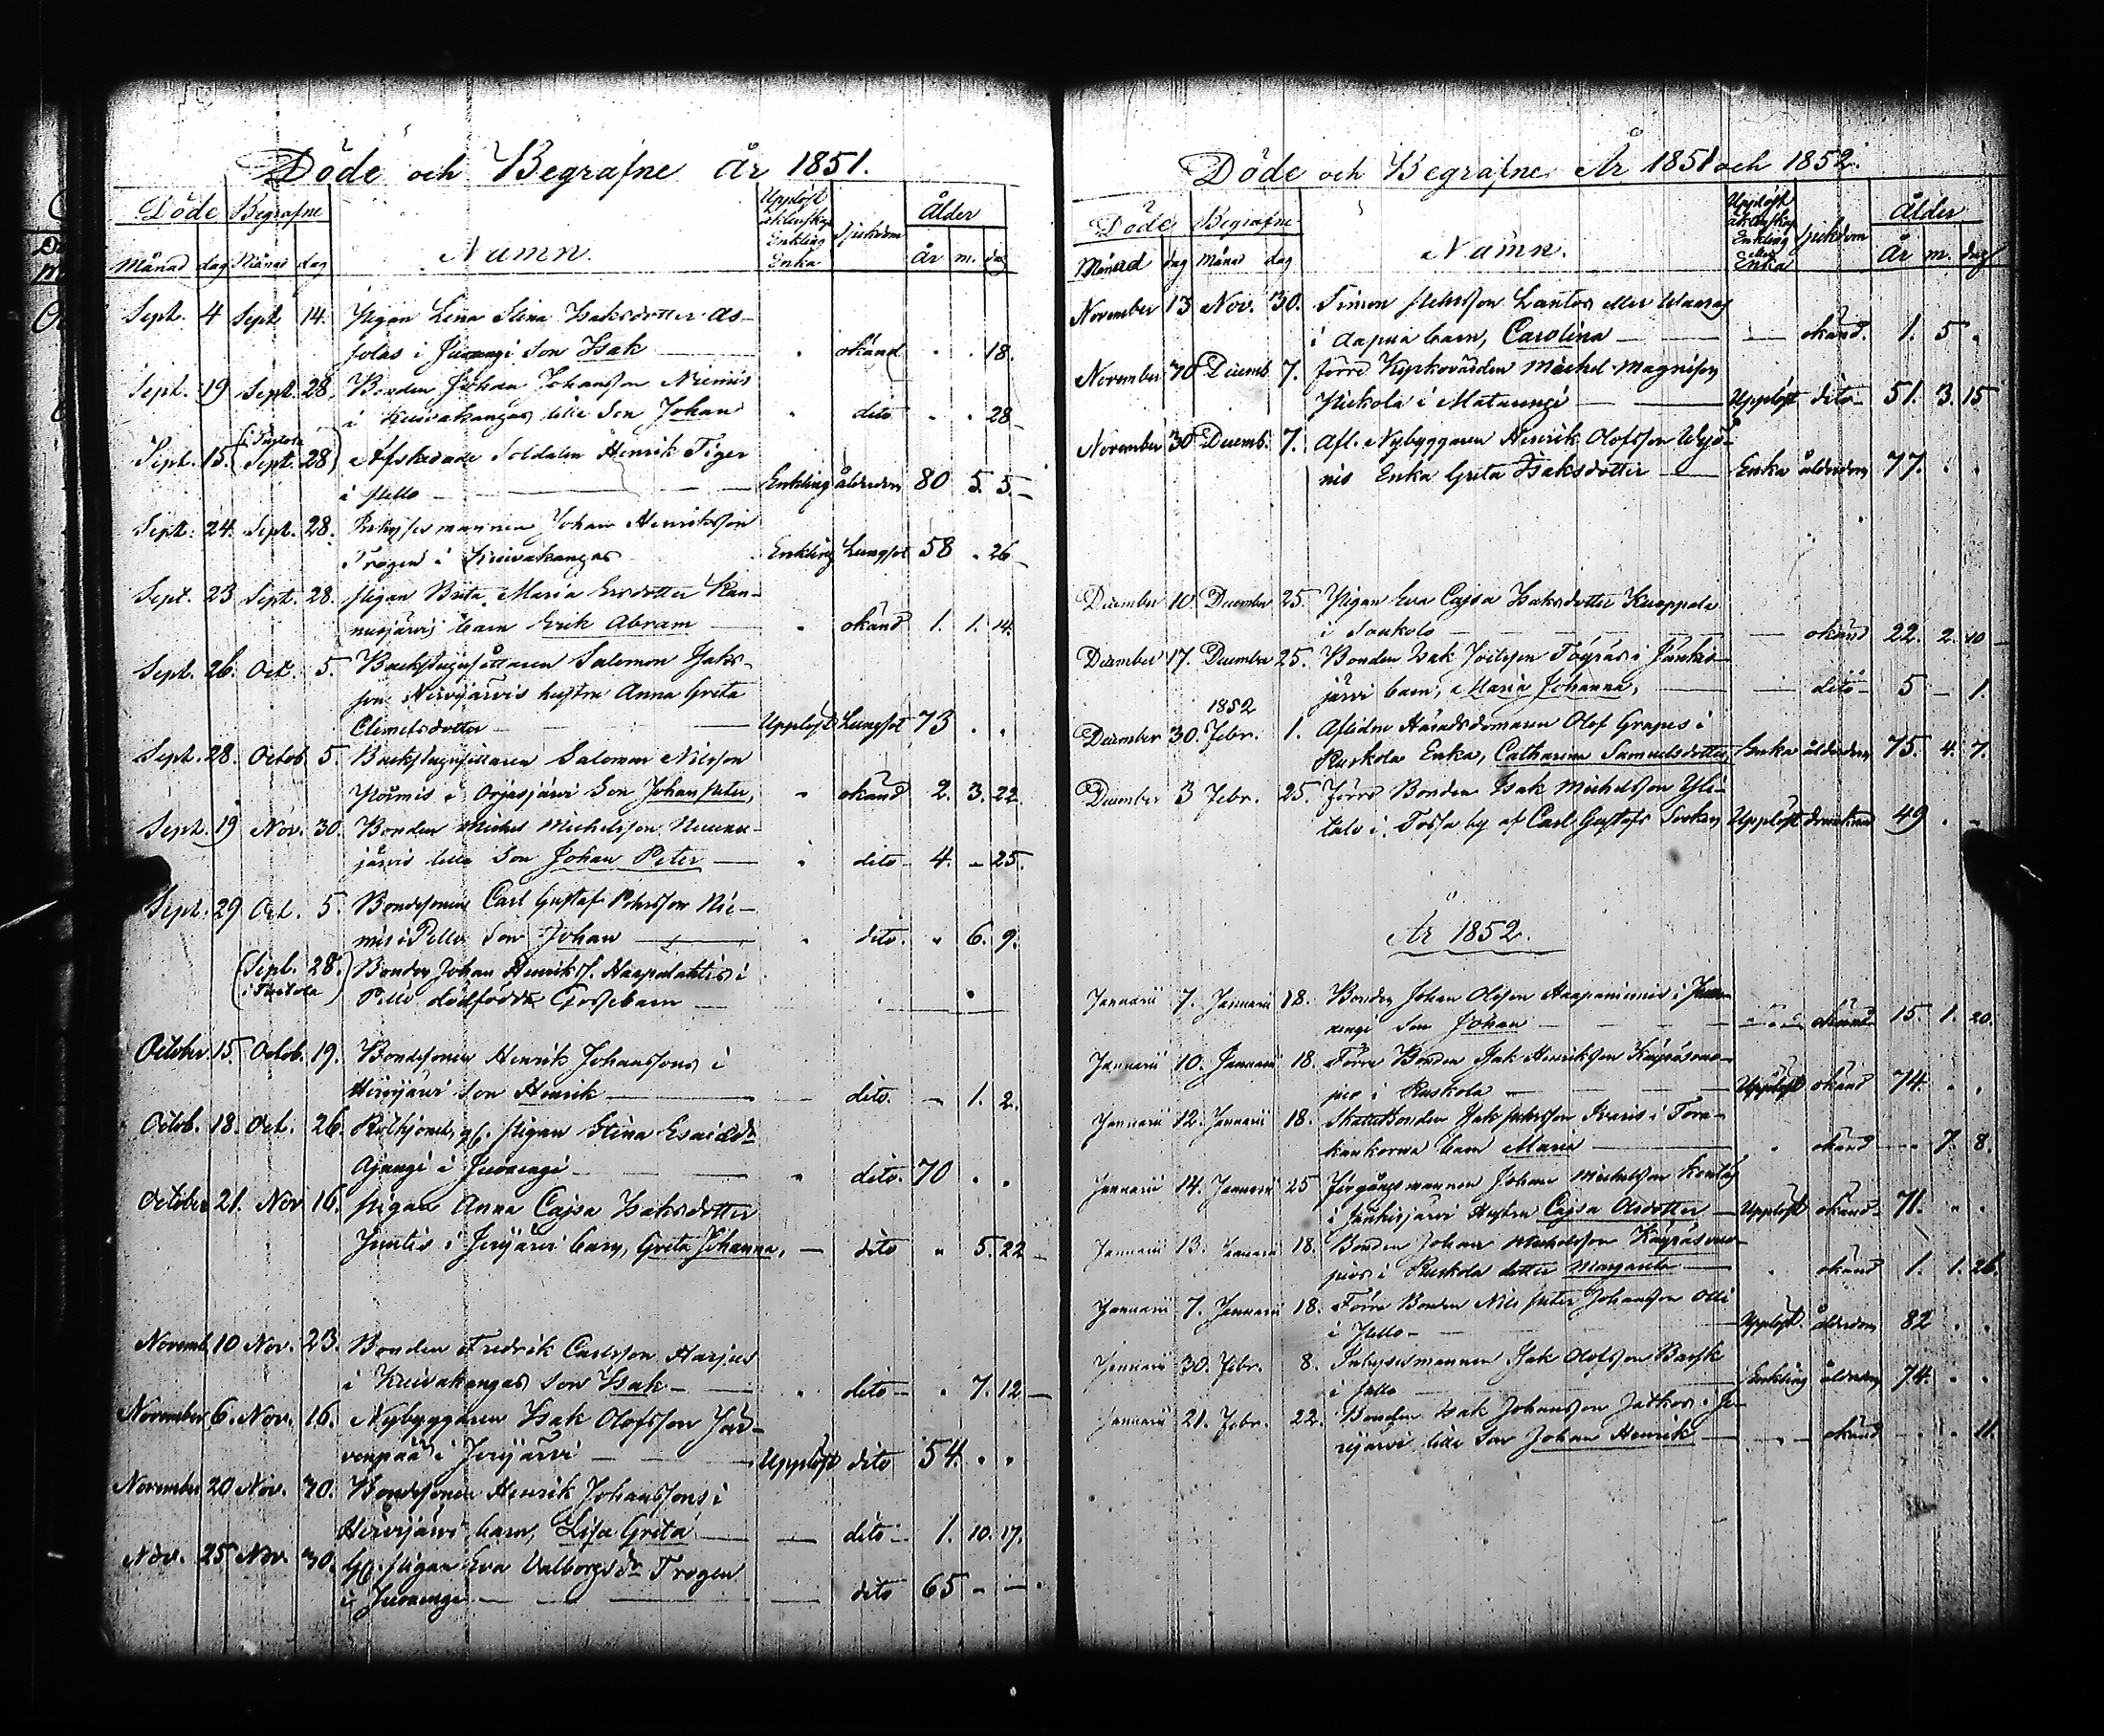 Döde och Begrafne År 1851.
Döde Begrafne Namn. Upplöst äktenskap Enkling Enka Sjukdom Ålder
Månad dag Månad dag år m. dag
Sept. 4 Sept. 14. Pigan Lena Stina Isaksdotter As-
jolas i Juoxengi Son Isak okänd 18.
Sept. 19 Sept. 28. Bonden Johan Johansson Niemis
i Kuivakangas lille Son Johan dito 28
i Turtola
Sept. 15. (Sept. 28) Afskedade Soldaten Henrik Tiger
i Pello Enkling ålderdom 80 5. 5.
Sept. 24. Sept. 28. Inhysesmannen Johan Henriksson
Trogen i Kuivakangas Enkling Lungsot 58 . 26
Sept. 23 Sept. 28. Pigan Brita Maria Ersdotter
barn Erik Abram okänd 1. 1. 14.
Sept. 26. Oct. 5. Backstugusittaren Salomon Isaks-
son Hirvijärvis hustru Anna Greta
Clemetsdotter Upplöst Lungsot 73 . .
Sept. 28. Octob. 5. Backstugusittaren Salomon Nilsson
i Orjasjärvi Son Johan Peter, okänd 2. 3. 22.
Sept. 19 Nov. 30. Bonden Michel Michelsson
järvis lille Son Johan Peter dito 4. - 25.
Sept. 29 Oct. 5. Bondesonen Carl Gustaf Pehrsson Nie-
mis i Pello Son Johan dito. 6. 9.
(Sept. 28. Bonden Johan Henrikss. Haapalahtis i
i Turtola) Pello dödfödda Gossebarn
October 15. Octob. 19. Bondesonen Henrik Johanssons i
Hirvijärvi Son Henrik dito. - 1. 2.
Octob. 18. Oct. 26. Rothjonet, gl. Pigan Stina Esaiædr
Ajangi i Juoxengi dito. 70 . .
October 21. Nov 16. Pigan Anna Cajsa Isaksdotter
Juntis i Jerijärvi barn, Greta Johanna, dito 5. 22
Novemb. 10 Nov. 23. Bonden Fredrik Carlsson Harjus
i Kuivakangas Son Isak dito 7. 12
November 6. Nov. 16. Nybyggaren Isak Olofsson Jär-
venpää i Jerijärvi Upplöst dito 54. . .
November 20 Nov. 30. Bondesonen Henrik Johanssons i
Hirvijärvi barn, Lisa Greta dito 1. 10. 17.
Nov. 25 Nov. 30. Gl. Pigan Eva Valborgsdr Trogen
i Juoxengi dito 65 - -
Döde och Begrafne År 1851 och 1852.
Döde Begrafne Namn. Upplöst äktenskap Enkling eller Enka Sjukdom Ålder
Månad dag Månad dag År m. dag
November 13 Nov. 30. Simon Pehrsson Lantos eller
i Aapua barn, Carolina okänd. 1. 5 .
November 30 Decemb. 7. förre Kyrkovärden Michel Magnisson
i Matarengi Upplöst dito 51. 3. 15
November 30 Decemb. 7. Afl. Nybyggaren Henrik Olofsson
nis Enka Greta Isaksdotter Enka ålderdom 77. . .
December 10. December 25. Pigan Eva Cajsa Isaksdotter
i okänd 22. 2. 10
December 17. December 25. Bonden Isak i Jänkis-
järvi barn, Maria Johanna, dito 5 - 1.
1852
December 30. Febr. 1. Aflidne Häradsdomaren Olof Grapes i
Ruskola Enka, Catharina Samuelsdotter Enka ålderdom 75. 4. 7.
December 3 Febr. 25. Förre Bonden Isak Michelsson Yli-
talo i by af Carl Gustafs Socken Upplöst drunknad 49 . -
År 1852.
Januarii 7. Januarii 18. Bonden Johan Olsson Haapaniemis i Juox-
engi Son Johan okänd 15. 1. 20.
Januarii 10. Januarii 18. Förre Bonden Isak Henriksson
i Ruskola Upplöst okänd 74 . .
Januarii 12. Januarii 18. Skattebonden Isak Pehrsson i Tora-
kankorva barn Maria okänd - 7. 8.
Januarii 14. Januarii 25 Johan Michelsson
i Jänkisjärvi Hustru Cajsa Olsdotter Upplöst okänd 71. . .
Januarii 13. Januarii 18. Bonden Johan Michelsson
i Ruskola dotter Margareta okänd 1. 1. 26.
Januarii 7. Januarii 18. Förre Bonden Nils Peter Johansson Olli
i Pello Upplöst. ålderdom 82 . .
Januarii 30. Febr. 8. Inhysesmannen Isak Olofsson Barsk
i Pello Enkling ålderdom 74. . .
Januarii 21. Febr. 22. Bonden Isak Johansson Jatkos i Je-
rijärvi lille Son Johan Henrik okänd . . 11.